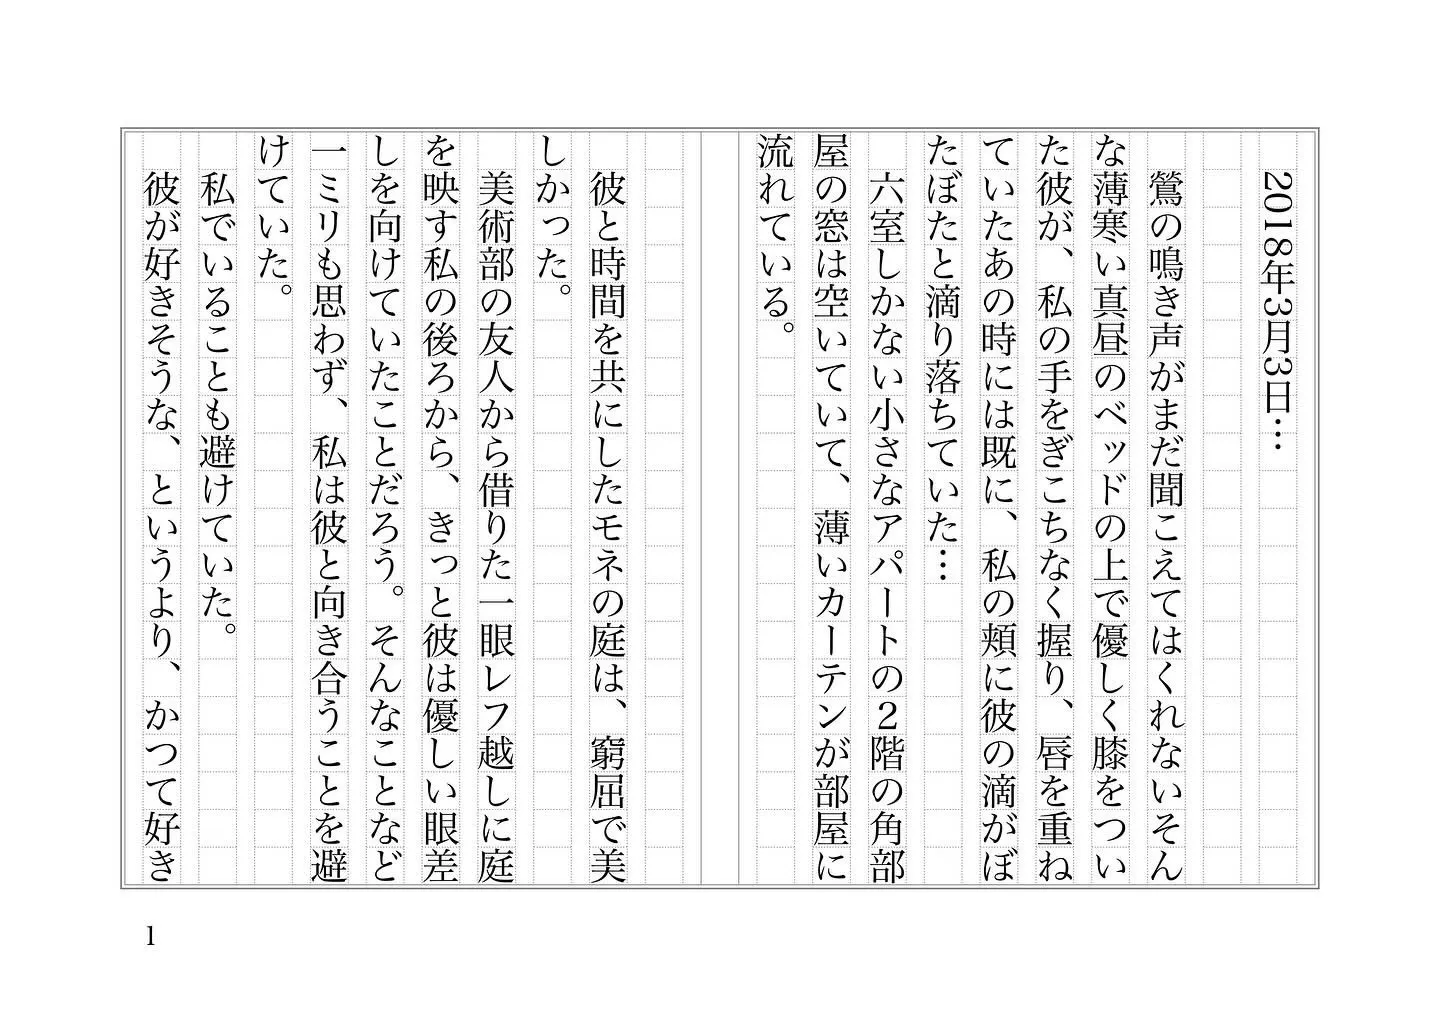 2018年3月3日…
鶯の鳴き声がまだ聞こえてはくれないそん
な薄寒い真昼のベッドの上で優しく膝をつい
た彼が、私の手をぎこちなく握り、唇を重ね
ていたあの時には既に、私の頬に彼の滴がぼ
たぼたと滴り落ちていた…
六室しかない小さなアパートの2階の角部
屋の窓は空いていて、薄いカーテンが部屋に
流れている。
彼と時間を共にしたモネの庭は、窮屈で美
しかった。
美術部の友人から借りた一眼レフ越しに庭
を映す私の後ろから、きっと彼は優しい眼差
しを向けていたことだろう。そんなことなど
一ミリも思わず、私は彼と向き合うことを避
けていた。
私でいることも避けていた。
彼が好きそうな、というより、かつて好き
1